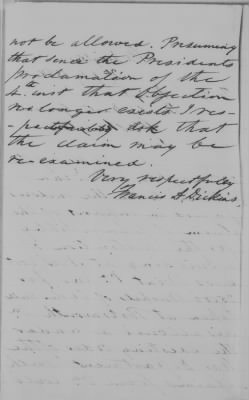 not be allowed. Presuming
that since the Presidents
proclamation of the
4th inst that objection
no longer exists I res-
-pectfully ask that
the claim may be
re-examined.
Very respectfully
Francis A Dickins.